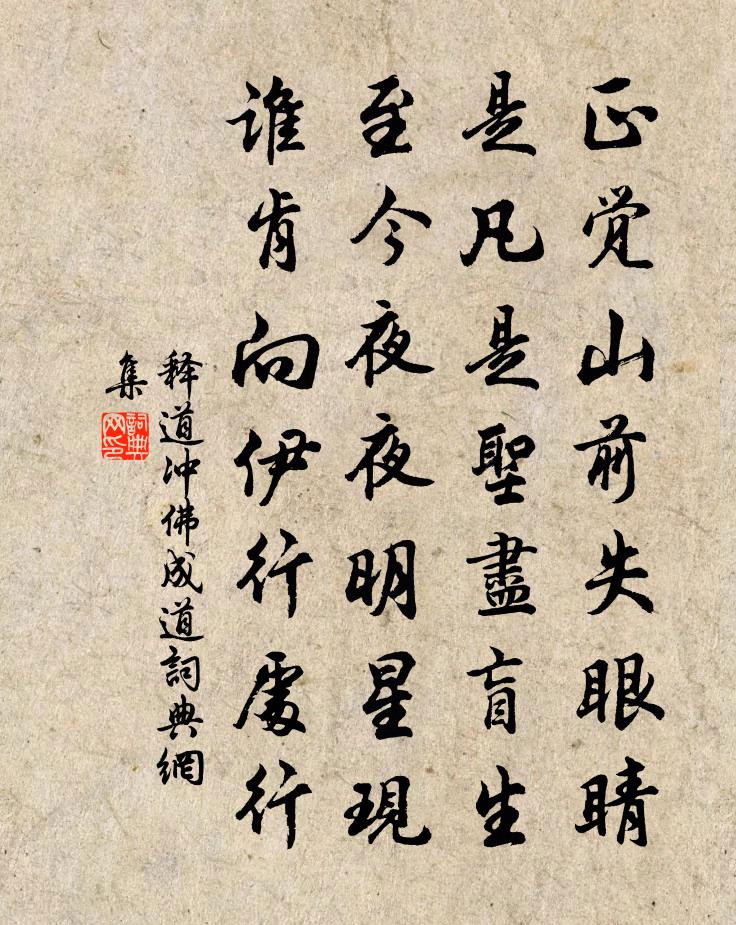 正覚山前失眼睛
是凡是聖盡盲生
至今夜夜明星現
誰肯向伊行處行
释道冲佛成道詞典網
集
詞典
网印